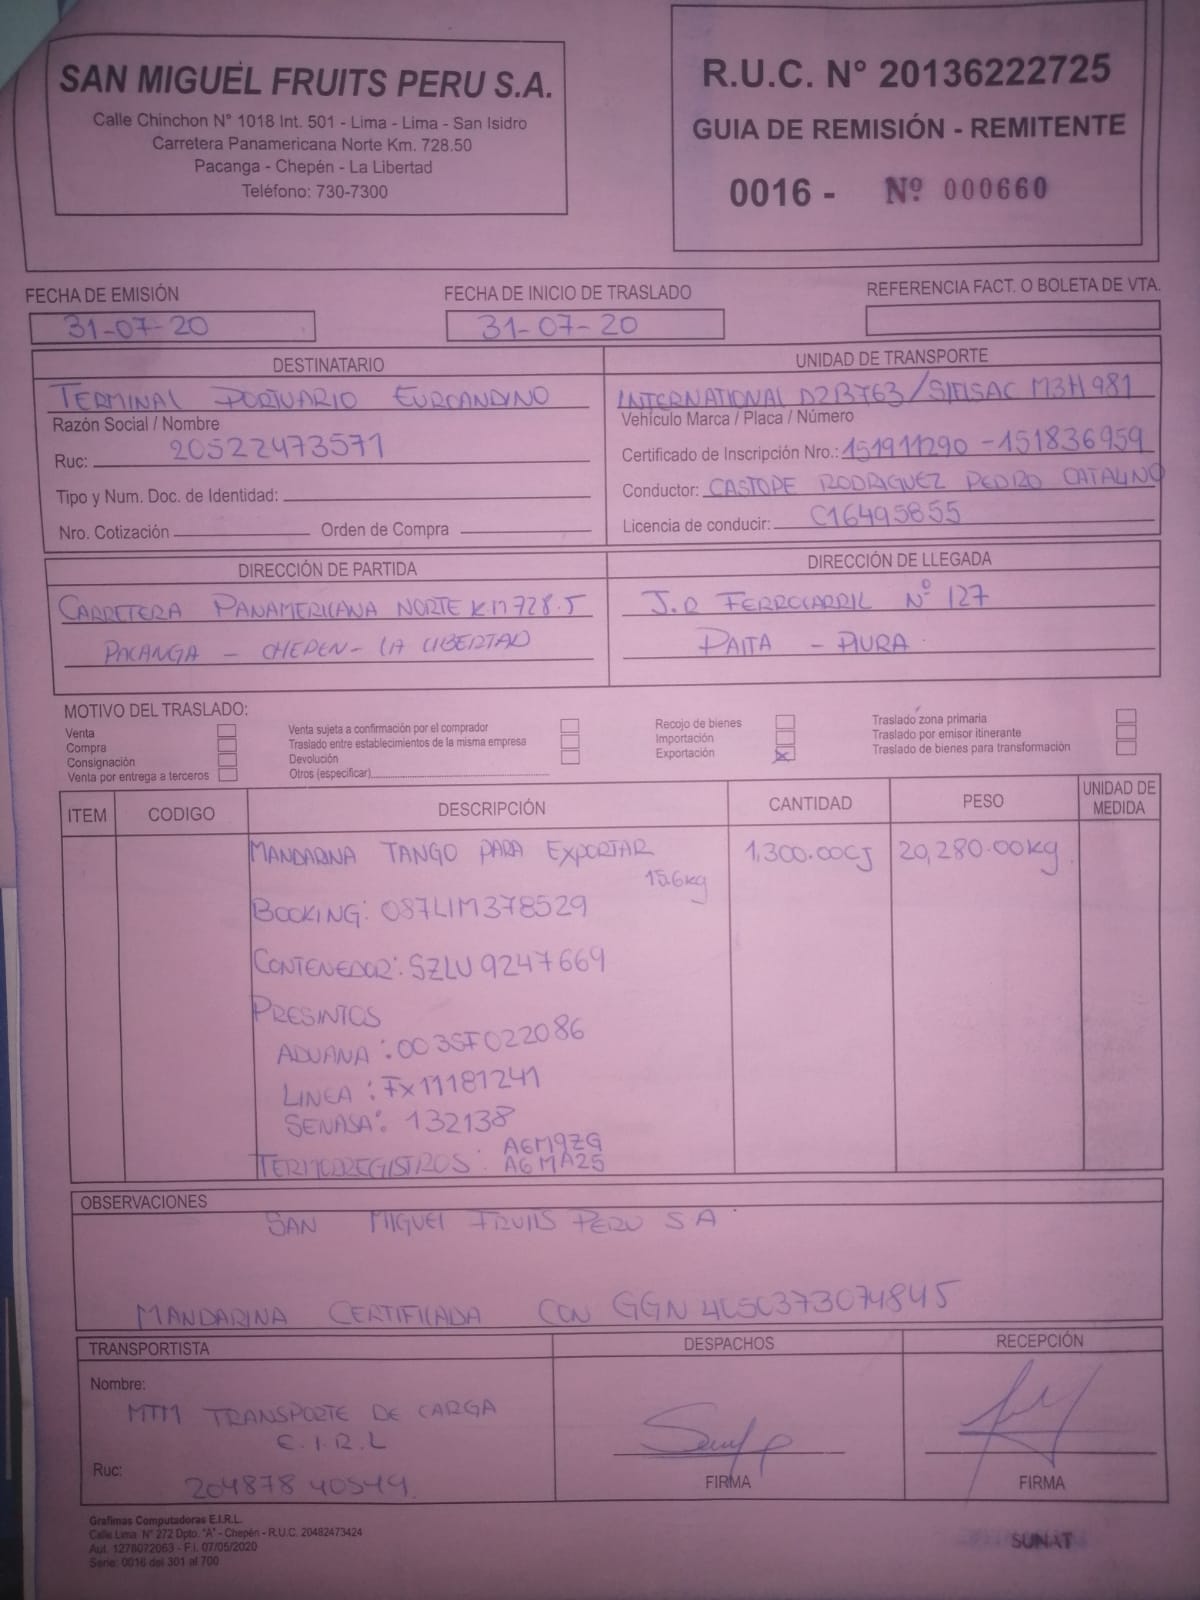 SAN MIGUEL FRUITS PERU S.A.
Calle Chinchon N° 1018 Int. 501 - Lima - Lima - San Isidro
Carretera Panamericana Norte Km. 728.50
Pacanga - Chepén - La Libertad
Teléfono: 730-7300
R.U.C. N° 20136222725
GUIA DE REMISIÓN - REMITENTE
0016 - Nº 000660
FECHA DE EMISIÓN
31-07-20
FECHA DE INICIO DE TRASLADO
31-07-20
REFERENCIA FACT. O BOLETA DE VTA.
DESTINATARIO
TERMINAL PORTUARIO EUROANDINO
Razón Social / Nombre
Ruc: 20522473571
Tipo y Num. Doc. de Identidad:
Nro. Cotización Orden de Compra
UNIDAD DE TRANSPORTE
INTERNATIONAL D2B763/ M3H981
Vehículo Marca / Placa / Número
Certificado de Inscripción Nro.: 151911290 - 151836959
Conductor: CASTOPE RODRIGUEZ PEDRO CATALINO
Licencia de conducir: C16495855
DIRECCIÓN DE PARTIDA
CARRETERA PANAMERICANA NORTE KM 728.5
PACANGA - CHEPEN - LA LIBERTAD
DIRECCIÓN DE LLEGADA
J.R FERROCARRIL Nº 127
PAITA - PIURA
MOTIVO DEL TRASLADO:
Venta
Compra
Consignación
Venta por entrega a terceros
Venta sujeta a confirmación por el comprador
Traslado entre establecimientos de la misma empresa
Devolución
Otros (especificar)
Recojo de bienes
Importación
Exportación X
Traslado zona primaria
Traslado por emisor itinerante
Traslado de bienes para transformación
ITEM CODIGO DESCRIPCIÓN CANTIDAD PESO UNIDAD DE MEDIDA
MANDARINA TANGO PARA EXPORTAR 1,300.00CJ 20,280.00Kg
15.6kg
BOOKING: 087LIM378529
CONTENEDOR: SZLU 9247669
PRESINTOS
ADUANA: 003SF022086
LINEA: FX11181241
SENASA: 132138
TERMOREGISTROS: A6M9ZG
A6MA25
OBSERVACIONES
SAN MIGUEL FRUITS PERU S A
MANDARINA CERTIFICADA CON GGN 4050373074845
TRANSPORTISTA
Nombre:
MTM TRANSPORTE DE CARGA
E.I.R.L
Ruc:
20487840549
DESPACHOS
FIRMA
RECEPCIÓN
FIRMA
Grafimas Computadoras E.I.R.L.
Calle Lima N° 272 Dpto. "A" - Chepén - R.U.C. 20482473424
Aut. 1278072063 - F.I. 07/05/2020
Serie: 0016 del 301 al 700
SUNAT